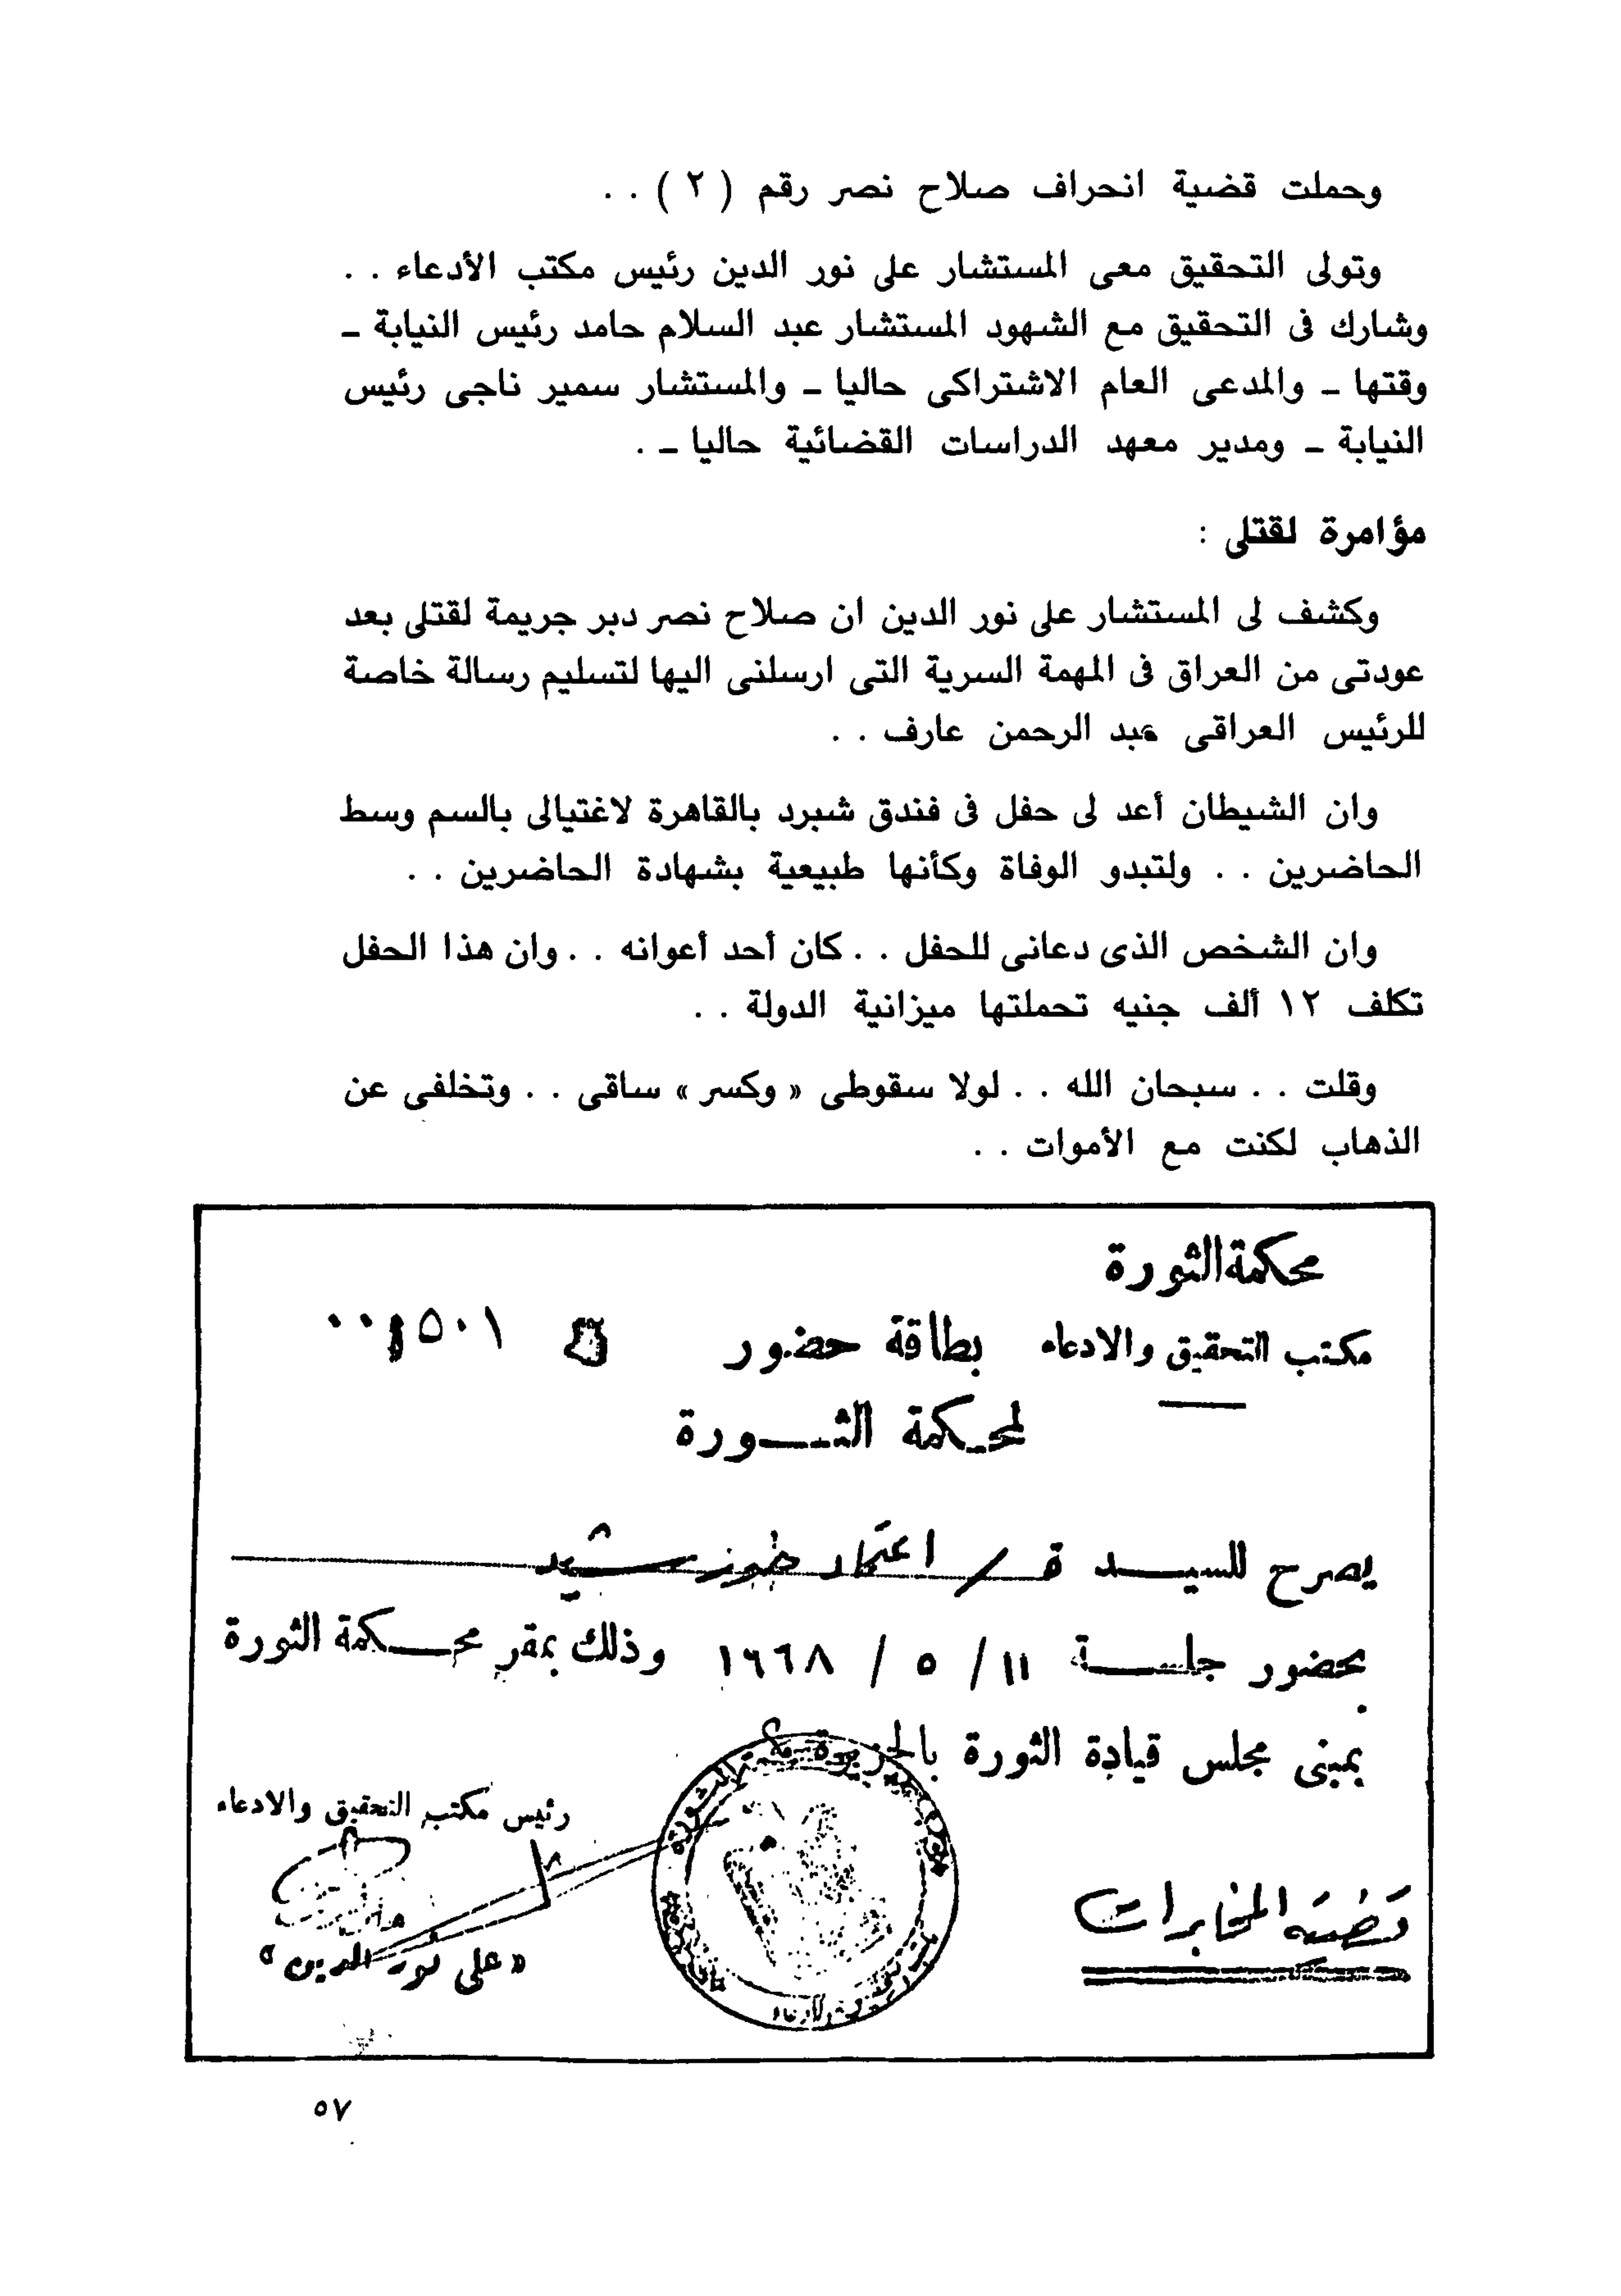 وحملت قضية انحراف صلاح نصر رقم ( ٢ ) . .
وتولى التحقيق معى المستشار على نور الدين رئيس مكتب الأدعاء . .
وشارك فى التحقيق مع الشهود المستشار عبد السلام حامد رئيس النيابة ـ
وقتها ـ والمدعى العام الاشتراكى حاليا ـ والمستشار سمير ناجى رئيس
النيابة ـ ومدير معهد الدراسات القضائية حاليا ـ .
مؤامرة لقتلى :
وكشف لى المستشار على نور الدين ان صلاح نصر دبر جريمة لقتلى بعد
عودتى من العراق فى المهمة السرية التى ارسلنى اليها لتسليم رسالة خاصة
للرئيس العراقى عبد الرحمن عارف . .
وان الشيطان أعد لى حفل فى فندق شبرد بالقاهرة لاغتيالى بالسم وسط
الحاضرين . . ولتبدو الوفاة وكأنها طبيعية بشهادة الحاضرين . .
وان الشخص الذى دعانى للحفل . . كان أحد أعوانه . . وان هذا الحفل
تكلف ١٢ ألف جنيه تحملتها ميزانية الدولة . .
وقلت . . سبحان الله . . لولا سقوطى « وكسر » ساقى . . وتخلفى عن
الذهاب لكنت مع الأموات . .
محكمة الثورة
مكتب التحقيق والادعاء بطاقة حضور
لمحكمة الثورة
يصرح للسيد ة / اعتماد خورشيد
بحضور جلسة ١١ / ٥ / ١٩٦٨ وذلك بمقر محكمة الثورة
بمبنى مجلس قيادة الثورة بالجزيرة
رئيس مكتب التحقيق والادعاء
قضية المخابرات
« على نور الدين »
٥٧